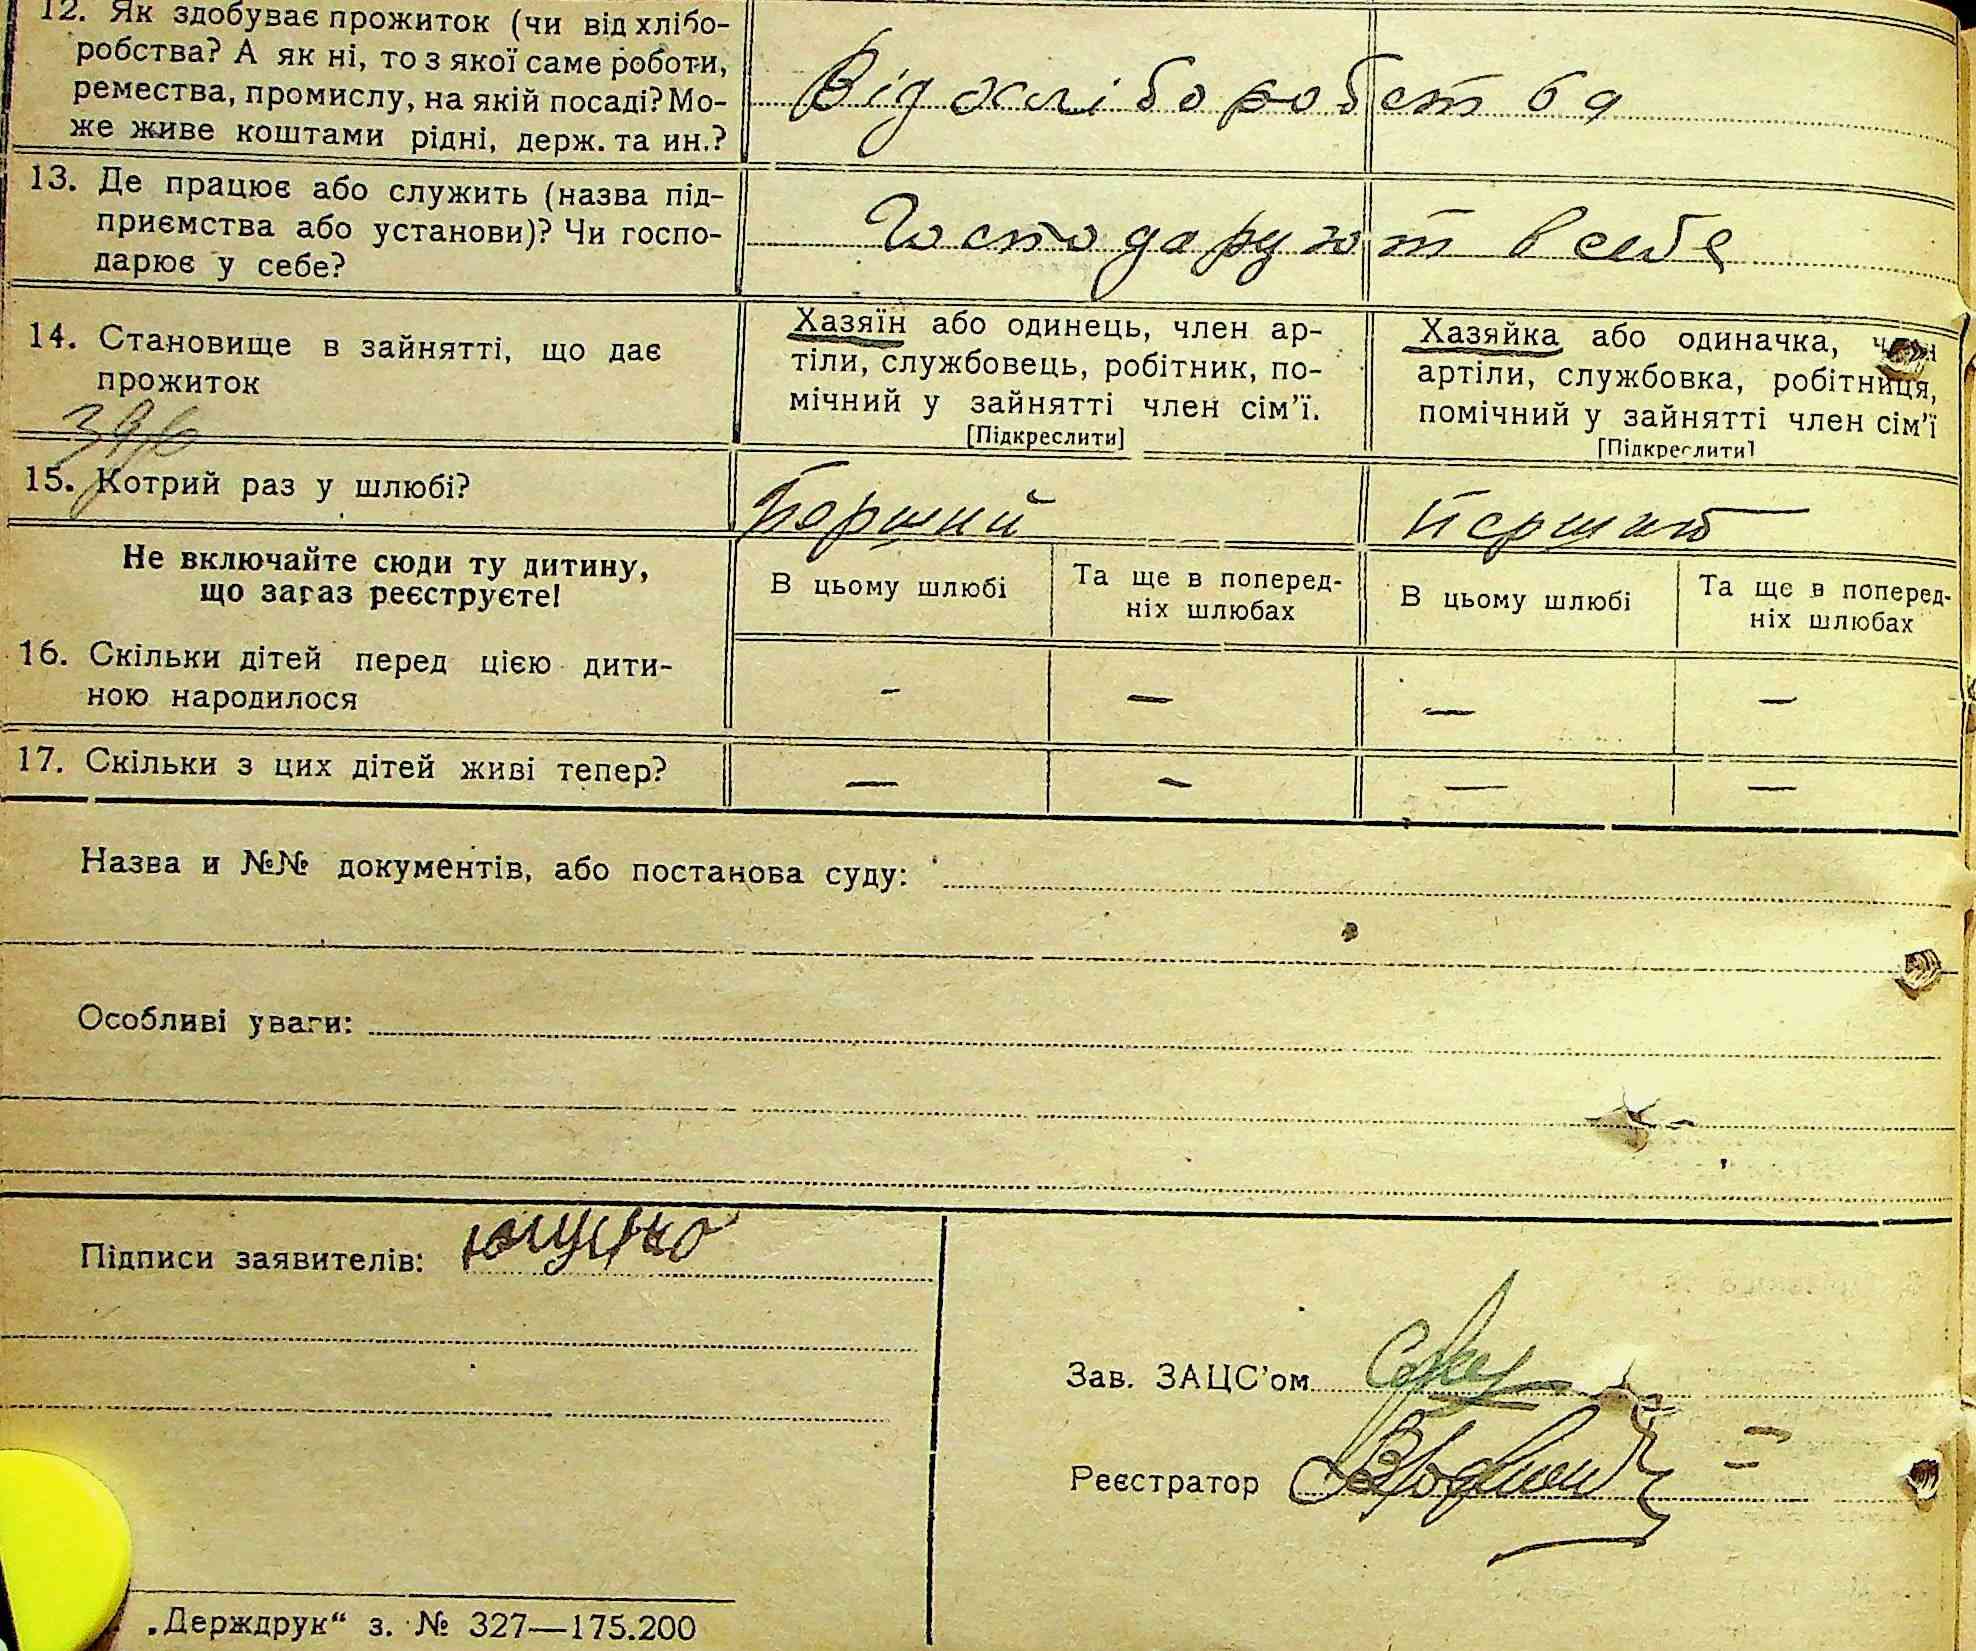 12. Як здобуває прожиток (чи від хлібо-
робства? А як ні, то з якої саме роботи,
ремества, промислу, на якій посаді? Мо-
же живе коштами рідні, держ. та ин.?
Від хліборобства
13. Де працює або служить (назва під-
приємства або установи)? Чи госпо-
дарює у себе?
Господарують в себе
14. Становище в зайнятті, що дає
прожиток
Хазяїн або одинець, член ар-
тіли, службовець, робітник, по-
мічний у зайнятті член сім’ї.
[Підкреслити]
Хазяйка або одиначка, член
артіли, службовка, робітниця,
помічний у зайнятті член сім’ї
[Підкреслити]
396
15. Котрий раз у шлюбі?
Перший
Перший
Не включайте сюди ту дитину,
що зараз реєструєте!
В цьому шлюбі
Та ще в поперед-
ніх шлюбах
В цьому шлюбі
Та ще в поперед-
ніх шлюбах
16. Скільки дітей перед цією дити-
ною народилося
- — — —
17. Скільки з цих дітей живі тепер?
— - — —
Назва и №№ документів, або постанова суду:
Особливі уваги:
Підписи заявителів:
Зав. ЗАЦС’ом
Реєстратор
„Держдрук“ з. № 327—175.200